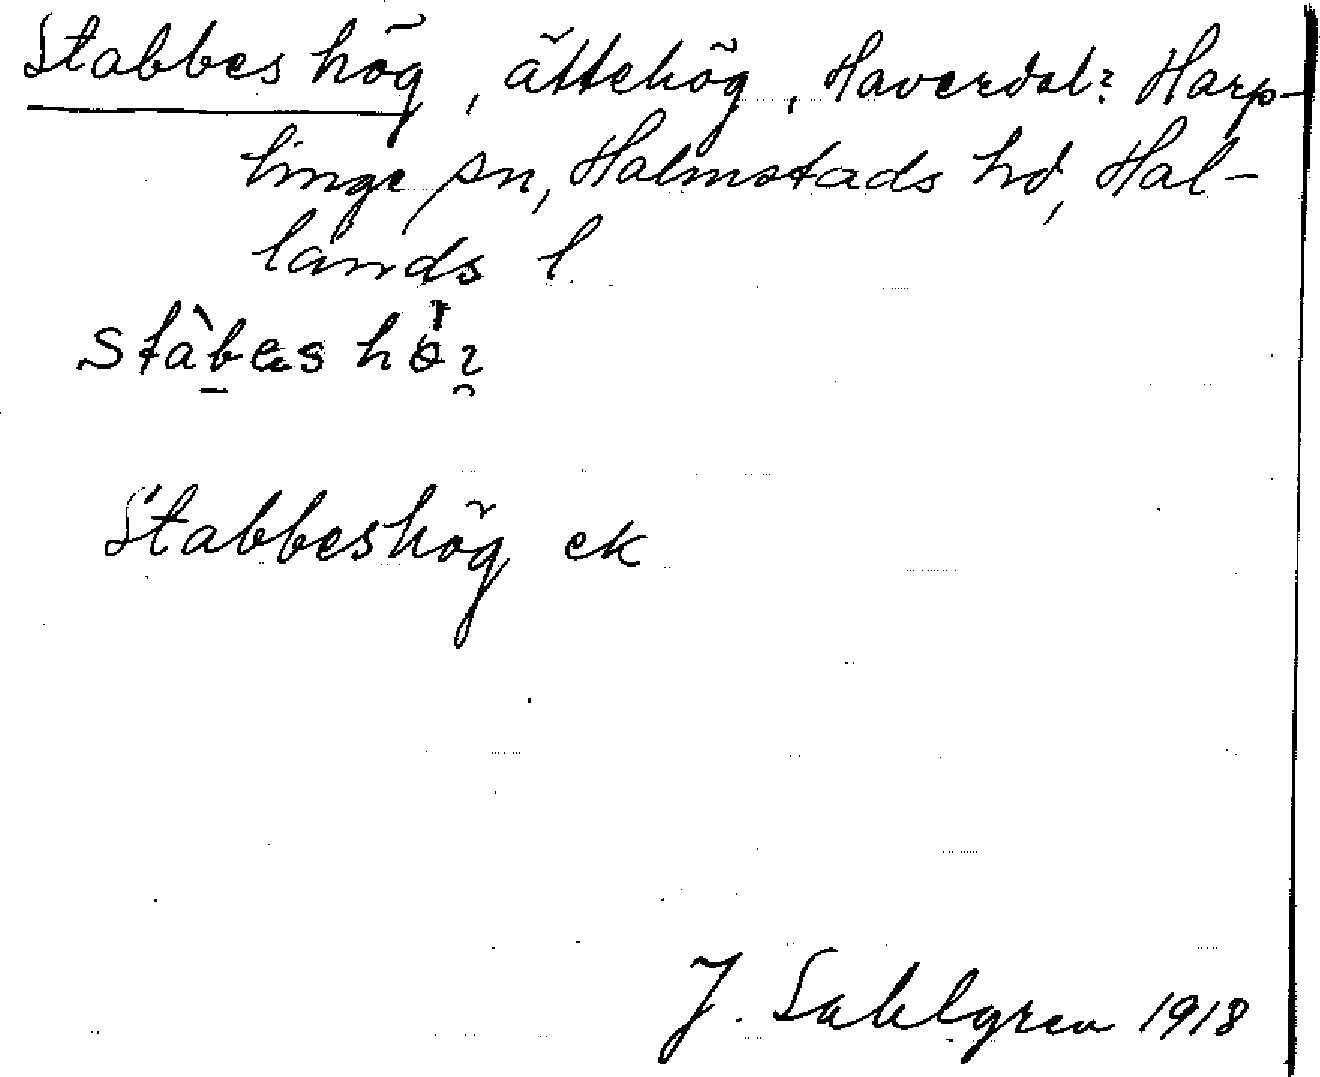 Stabbes hög, ättehög, Haverdal? Harp-
linge sn, Halmstads hd, Hal-
lands l
Stabbeshög ek
J. Sahlgren 1918